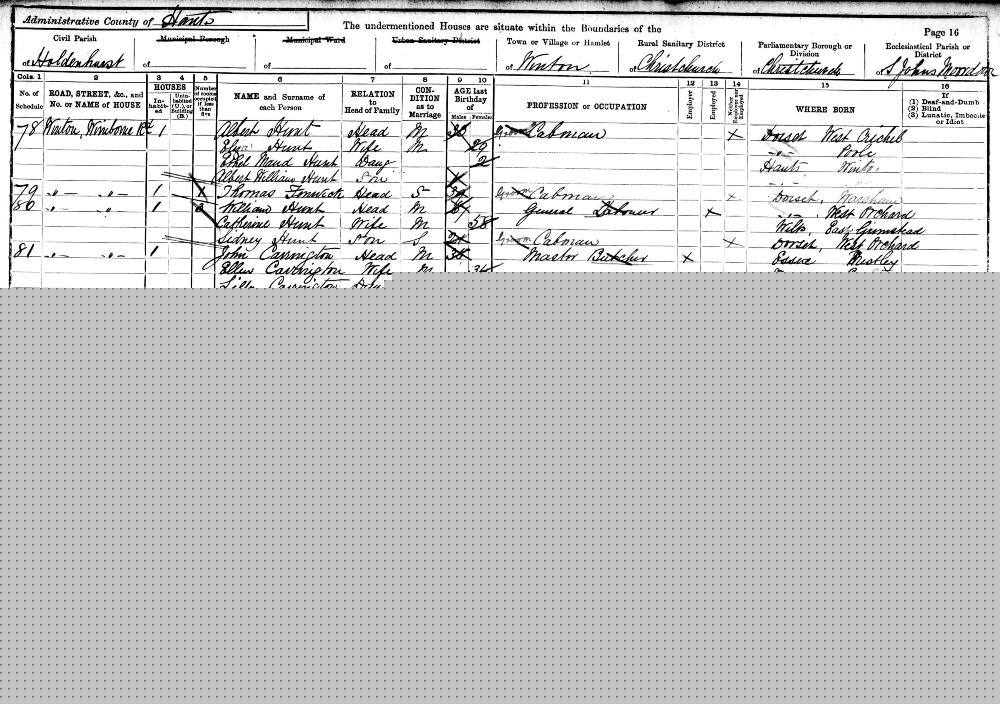 Administrative County of Hants
The undermentioned Houses are situate within the Boundaries of the
Page 16
Civil Parish
Municipal Borough
Municipal Ward
Urban Sanitary District
Town or Village or Hamlet
Rural Sanitary District
Parliamentary Borough or Division
Ecclesiastical Parish or District
of Holdenhurst
of
of
of
of Winton
of Christchurch
of Christchurch
of S Johns
Cols. 1 2 3 4 5 6 7 8 9 10 11 12 13 14 15 16
No. of Schedule
ROAD, STREET, &c., and No. or NAME of HOUSE
HOUSES
Inhabited
Uninhabited (U.), or Building (B.)
Number of rooms occupied if less than five
NAME and Surname of each Person
RELATION to Head of Family
CONDITION as to Marriage
AGE last Birthday of
Males Females
PROFESSION or OCCUPATION
Employer
Employed
Neither Employer nor Employed
WHERE BORN
If
(1) Deaf-and-Dumb
(2) Blind
(3) Lunatic, Imbecile or Idiot
78 Winton, Wimborne Rd 1 Albert Hunt Head M Groom Cabman X Dorset West
Eliza Hunt Wife M Poole
Ethel Maud Hunt Daug 2 Hants Winton
Albert William Hunt Son
79 " " 1 Thomas Head S Groom Cabman X Dorset, Wareham
80 " " 1 William Hunt Head M General Labourer X West Orchard
Catherine Hunt Wife M 58 Wilts, East Grimstead
Sidney Hunt Son S Groom Cabman X Dorset, West Orchard
81 " " 1 John Carrington Head M 38 Master Butcher X Essex Mistley
Ellen Carrington Wife M
Carrington